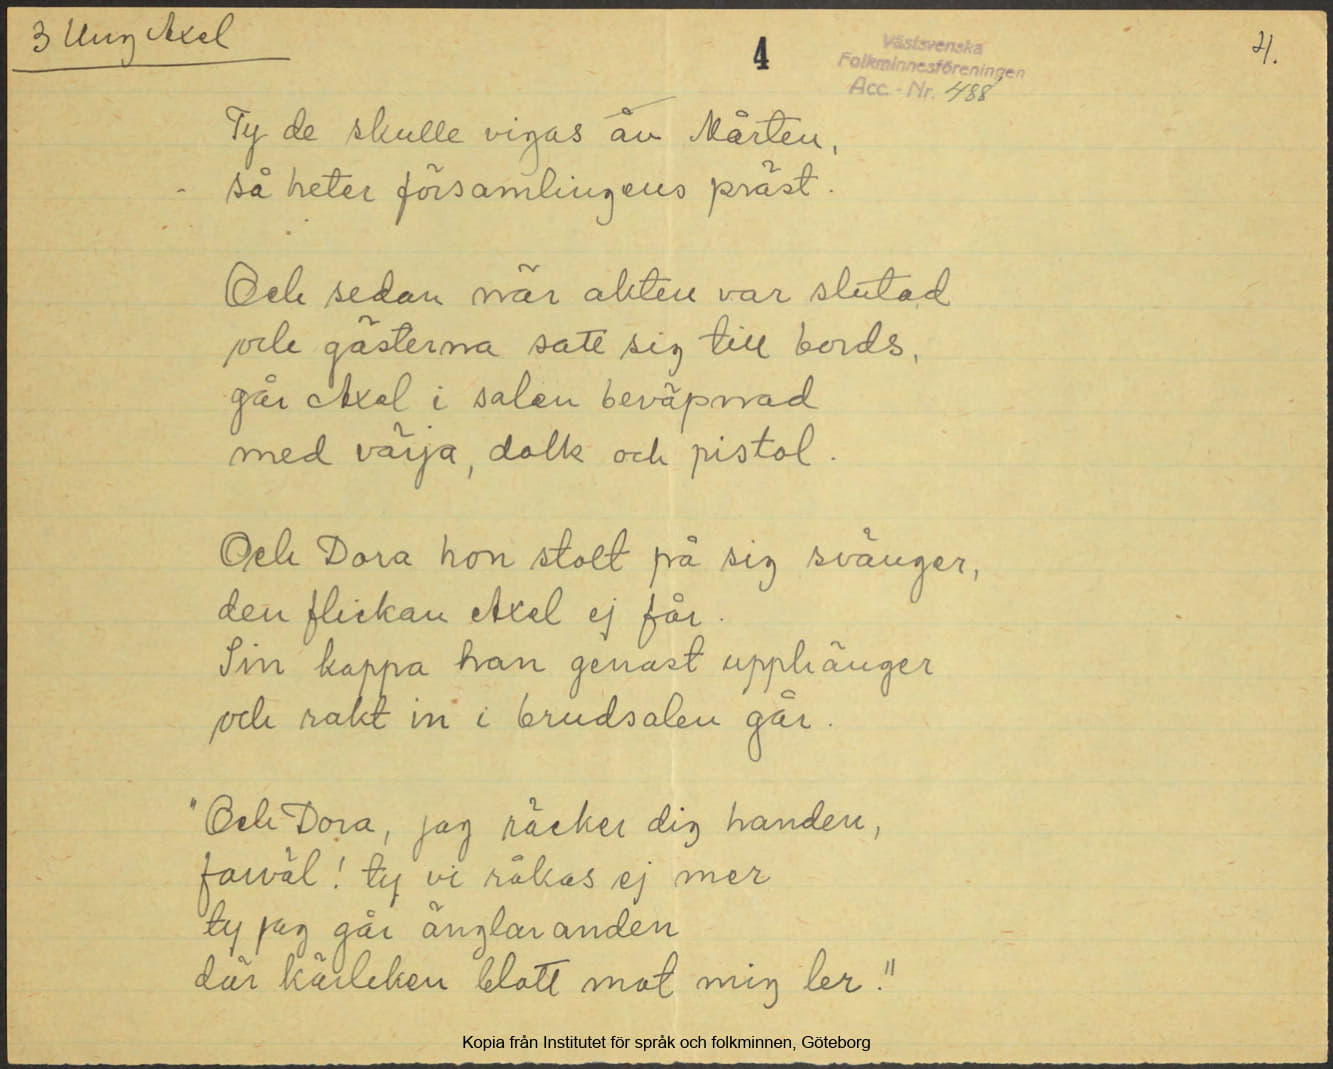 3 Ung Axel
4
Västsvenska
Folkminnesföreningen
Acc. - Nr. 488
21.
Ty de skulle vigas åv Mårten,
så heter församlingens präst.
Och sedan när akten var slutad
och gästerna satt sig till bords,
går Axel i salen beväpnad
med värja, dolk och pistol.
Och Dora hon stolt på sig svänger,
den flickan Axel ej får.
Sin kappa han genast upphänger
och rakt in i brudsalen går.
"Och Dora, jag räcker dig handen,
farväl! ty vi råkas ej mer
ty jag går änglaranden
där kärleken blott mot mig ler."
Kopia från Institutet för språk och folkminnen, Göteborg